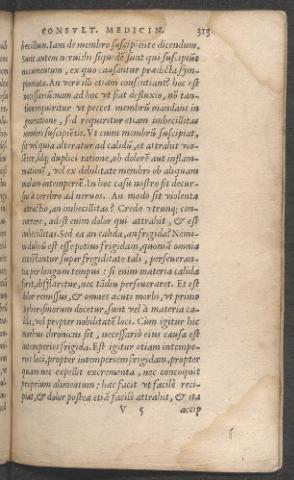 CONSVLT. MEDICIN. 313
becillum. Iam de membro suscipiente dicendum.
Sunt autem nerui: hi siquidē sunt qui suscipiūt
nocumentum, ex quo causantur prædicta sym-
ptomata. An verò illi etiam consentiant? hoc est
necessariū: nam ad hoc vt fiat defluxio, nō tan-
tùm requiritur vt peccet membrū mandans in
generatione, sed requiritur etiam imbecillitas
membri suscipiētis. Vt enim membrū suscipiat,
fit vel quia alteratur ad calidū, et attrahit vio-
lēter, idq; duplici ratione, ob dolorē aut inflam-
mationē, vel ex debilitate membri ob aliquam
malam intemperiē. In hoc casu nostro fit decur-
sus à cerebro ad neruos. An modo fit violenta
attractio, an imbecillitas? Credo vtrunq; con-
currere, adest enim dolor qui attrahit, & est
imbecillitas. Sed ea an calida, an frigida? Nemi-
ni dubiū est esse potius frigidam, quoniā omnia
attestantur super frigiditate tali, perseueran-
tia per longum tempus: si enim materia calida
foret, afflaret, nec tādiu perseueraret. Et est
dolor remissus, & omnes acuti morbi, vt primo
aphorismorum docetur, sunt vel à materia ca-
lida, vel propter nobilitatē loci. Cùm igitur hic
morbus chronicus sit, necessariò eius causa est
intemperies frigida. Est igitur etiam intempe-
ries loci, propter intemperiem frigidam, propter
quam nec expellit excrementa, nec concoquit
proprium alimentum: hæc facit vt facilè reci-
piat, & dolor postea etiā facilè attrahit, & ita
V 5 accip